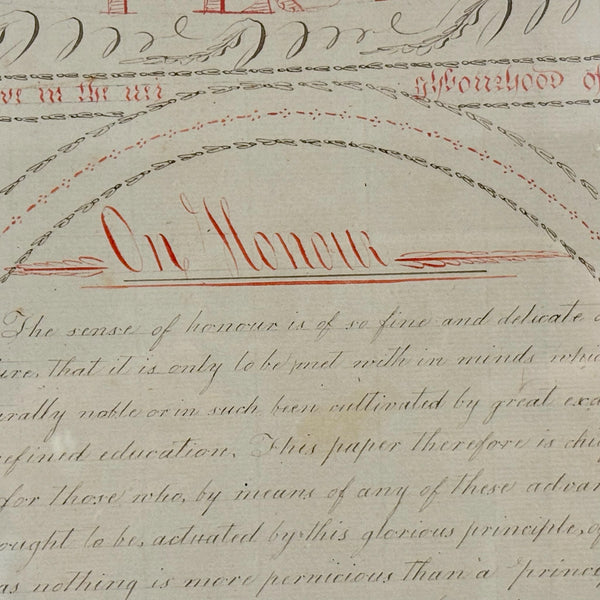 ve in the nei ghbourhood of
On Honour
The sense of honour is of so fine and delicate a
ure, that it is only to be met with in minds whic
urally noble or in such been cultivated by great exa
refined education. This paper therefore is chie
for those who, by means of any of these advan
ought to be, actuated by this glorious principle, 
as nothing is more pernicious than a princi